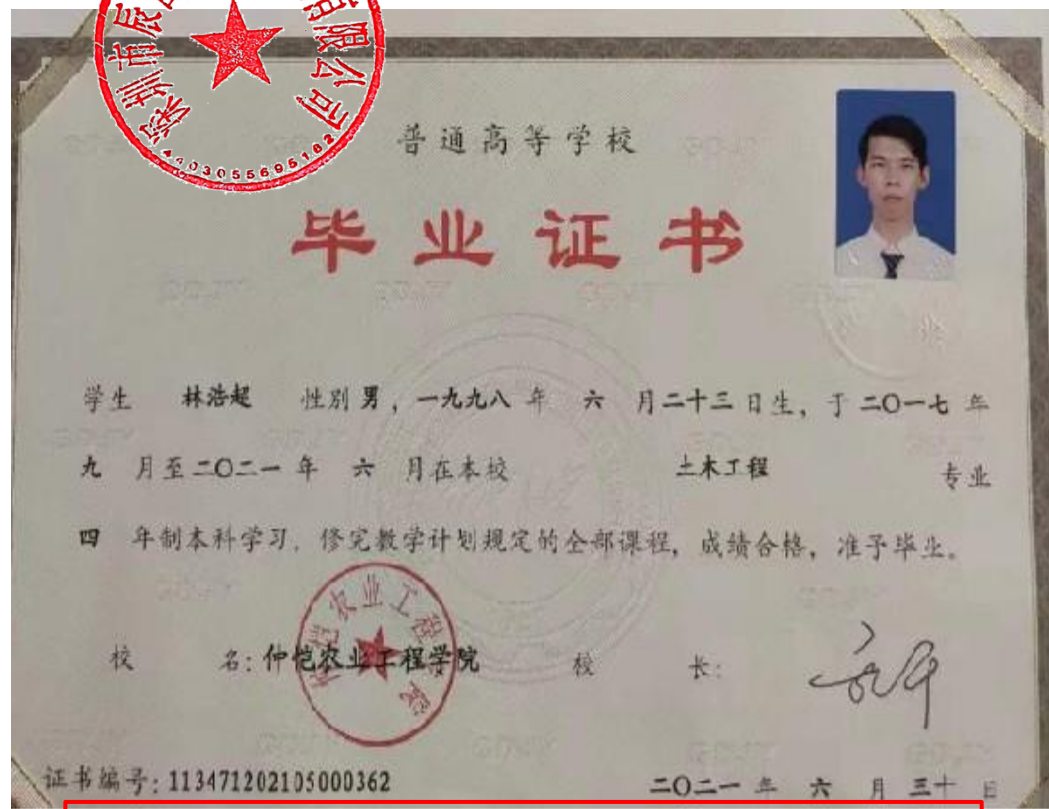 深圳市辰
有限公司
4403055695182
普通高等学校
毕业证书
学生 林浩超 性别 男，一九九八 年 六 月 二十三 日生，于 二〇一七 年
九 月至 二〇二一 年 六 月在本校 土木工程 专业
四 年制本科学习，修完教学计划规定的全部课程，成绩合格，准予毕业。
仲恺农业工程学院
校 名：仲恺农业工程学院 校 长：
证书编号：113471202105000362 二〇二一 年 六 月 三十 日